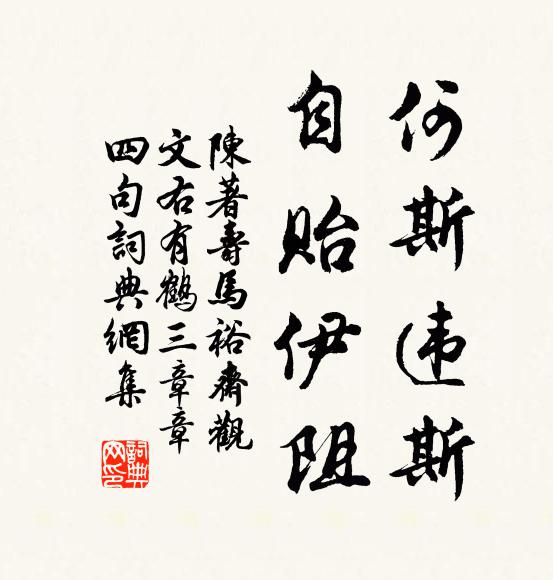 何斯违斯
自贻伊阻
陳著壽馬裕齋觀
文右有鶴三章章
四句詞典網集
詞典网印